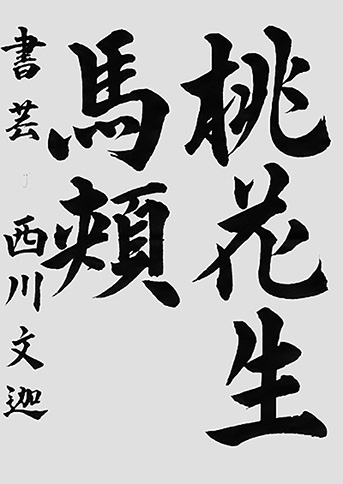 桃花生
馬頬
書芸 西川文迦